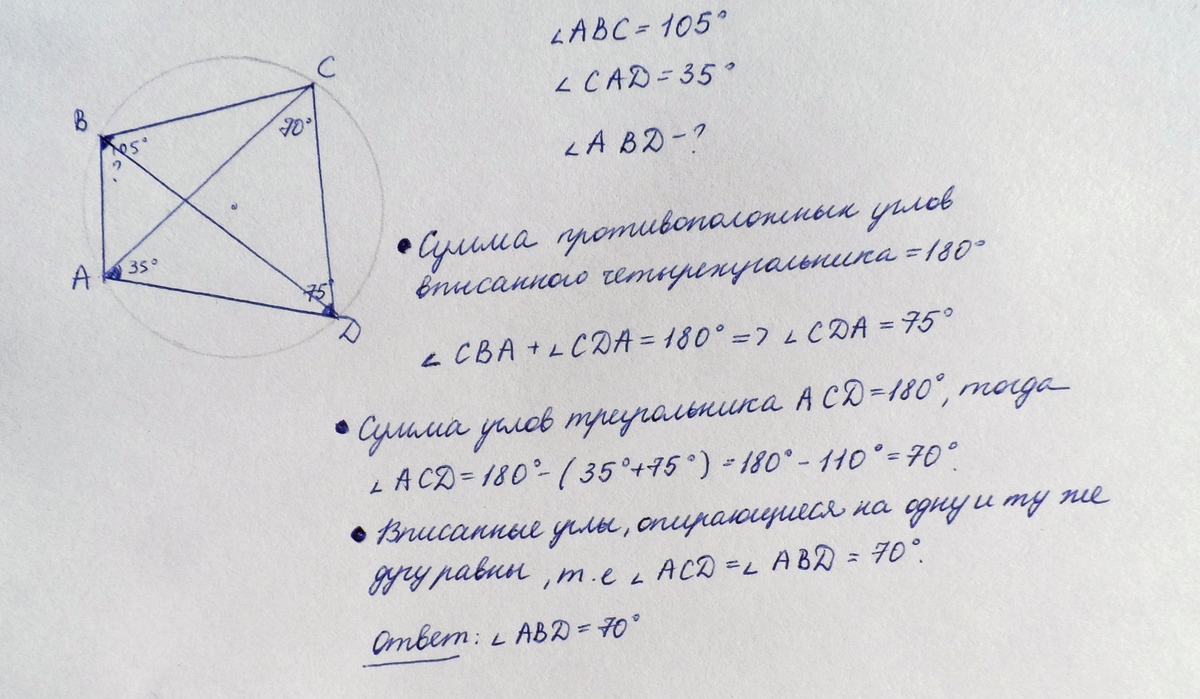 ∠ABC = 105°
∠CAD = 35°
∠ABD - ?
C
B
70°
105°
?
A
35°
75°
D
• Сумма противоположных углов
вписанного четырехугольника = 180°
∠CBA + ∠CDA = 180° => ∠CDA = 75°
• Сумма углов треугольника ACD = 180°, тогда
∠ACD = 180° - (35° + 75°) = 180° - 110° = 70°.
• Вписанные углы, опирающиеся на одну и ту же
дугу равны, т.е ∠ACD = ∠ABD = 70°.
Ответ: ∠ABD = 70°